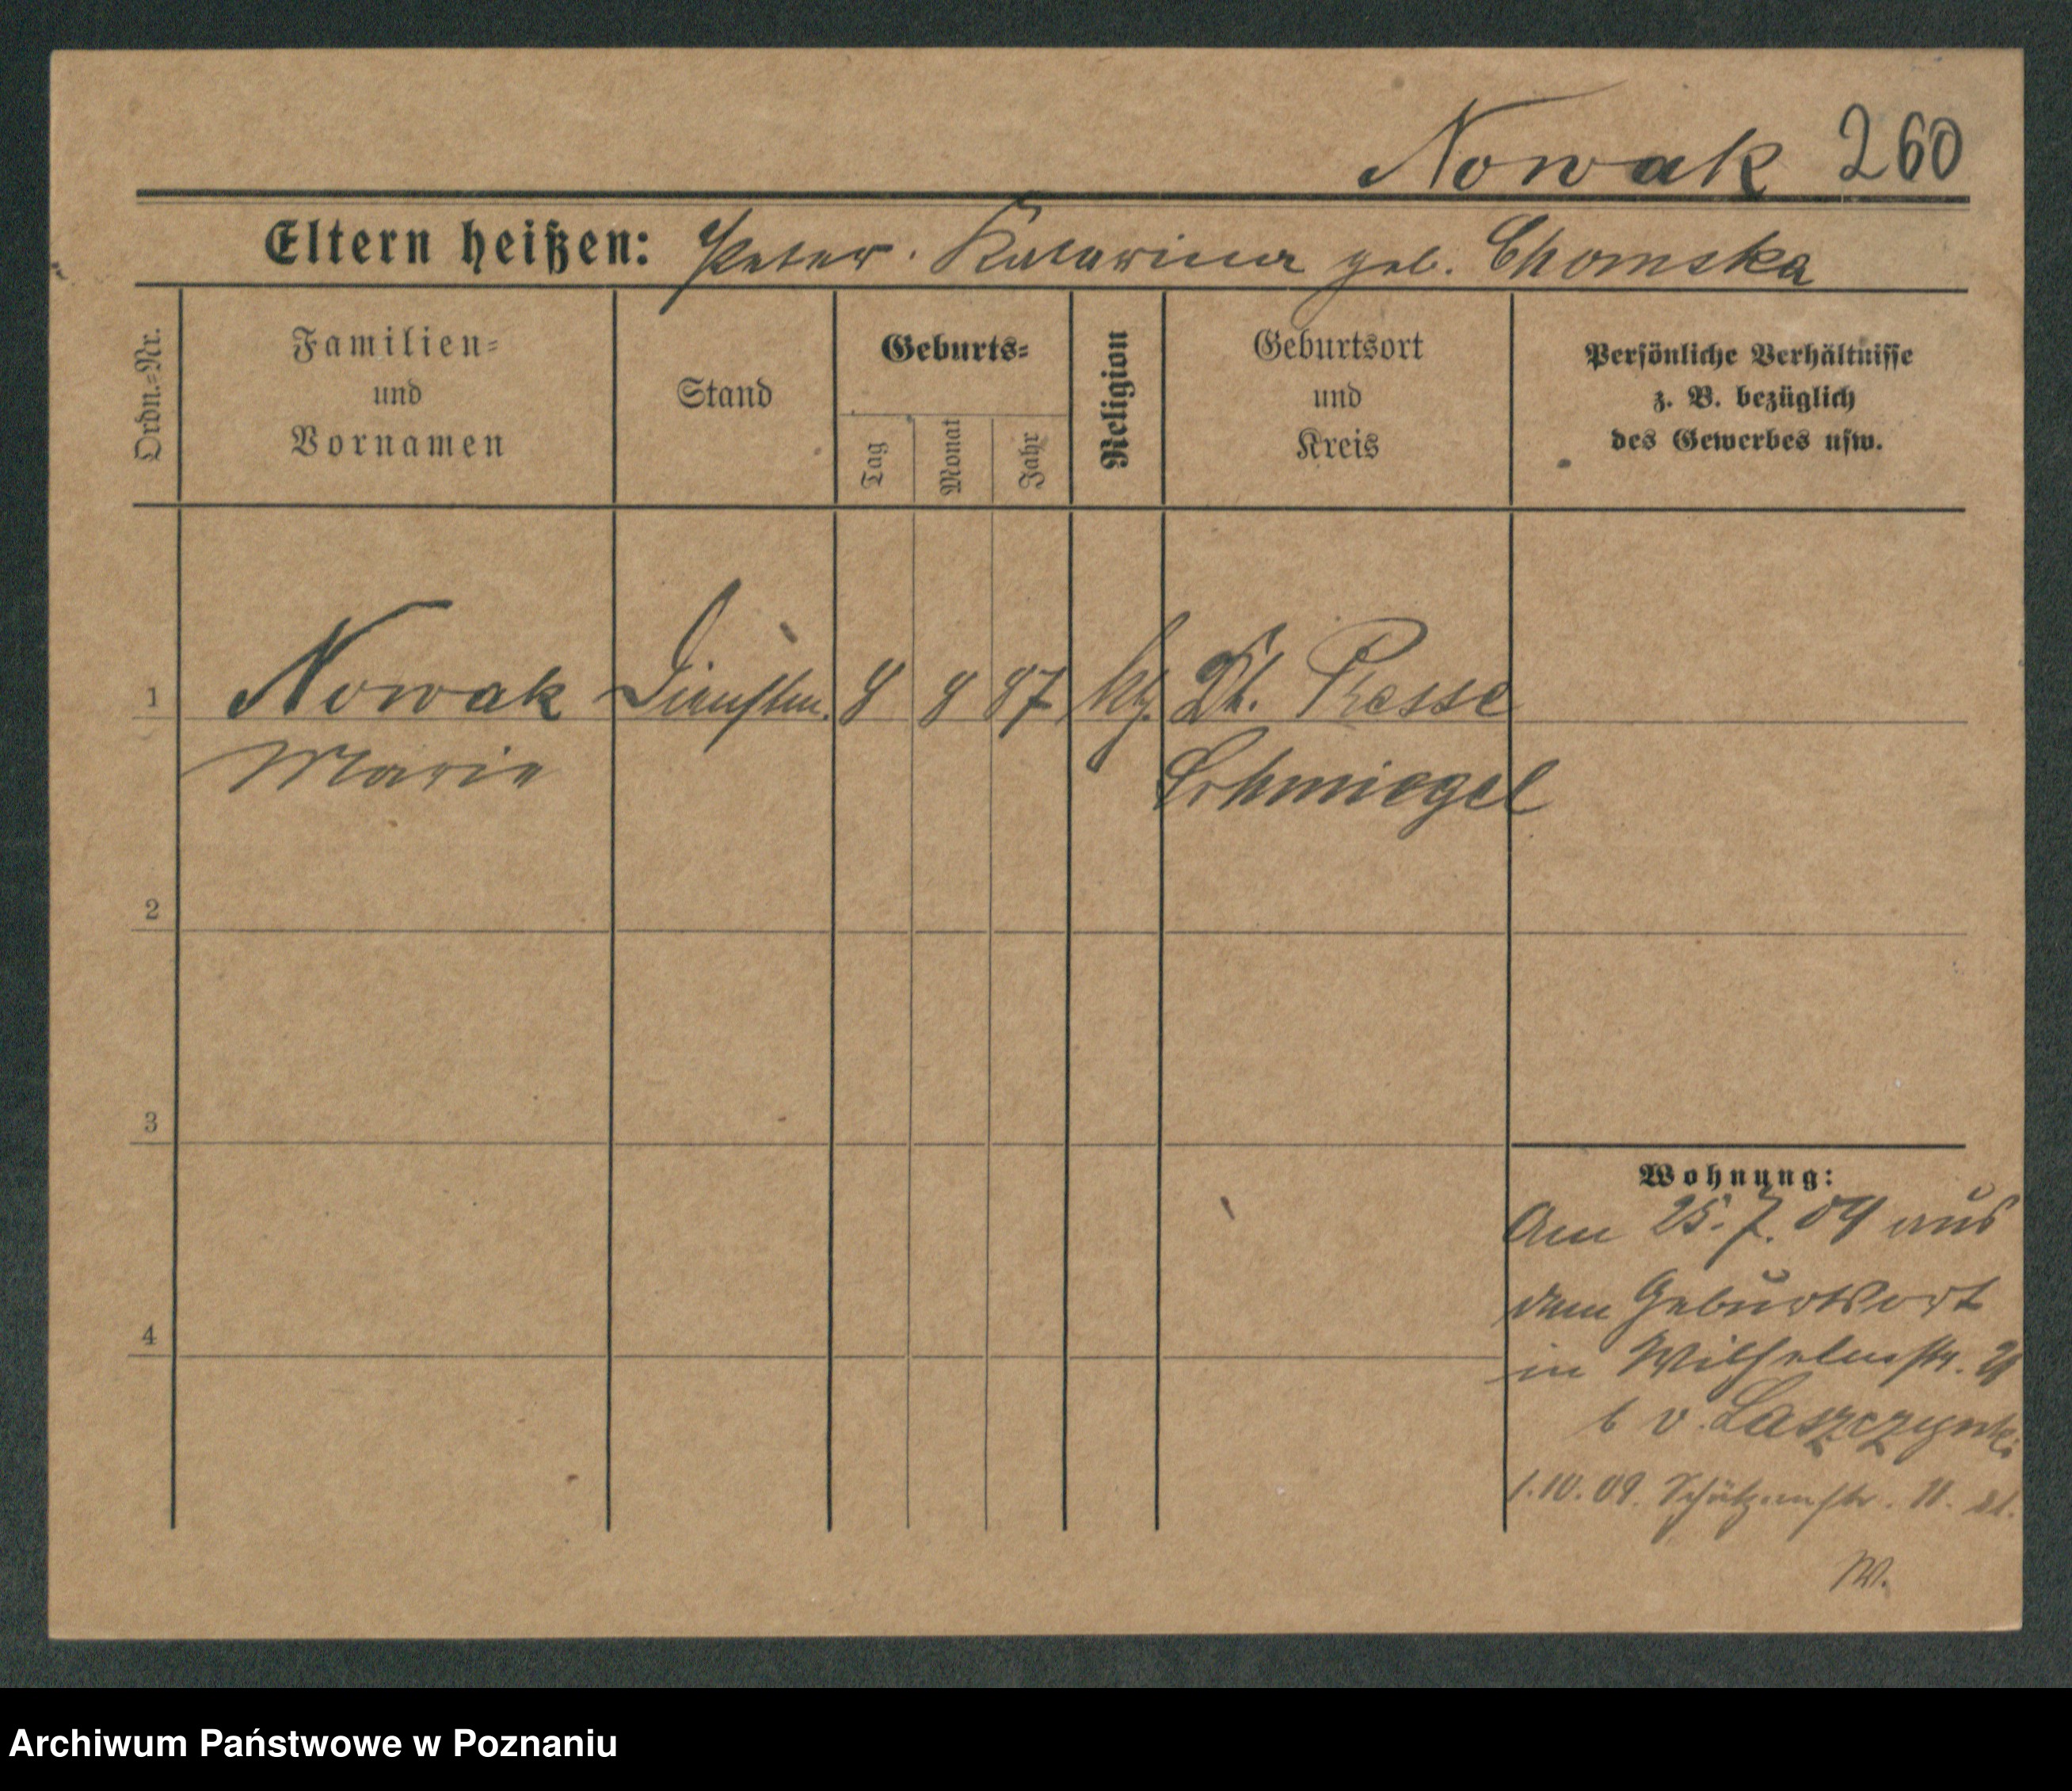 Nowak 260
Eltern heißen: Peter. Katarina geb. Chomska
Ordn.=Nr.
Familien=
und
Vornamen
Stand
Geburts=
Tag
Monat
Jahr
Religion
Geburtsort
und
Kreis
Persönliche Verhältnisse
z. B. bezüglich
des Gewerbes usw.
1 Nowak Dienstm. 8 8 87 kth. Dt. Presse
Marie Schmiegel
2
3
4
Wohnung:
Am 25. 7. 09 aus
dem Geburtsort
in Wilhelmstr.
b v. Laszczynski
1.10.09. Schützenstr. 11.
W.
Archiwum Państwowe w Poznaniu